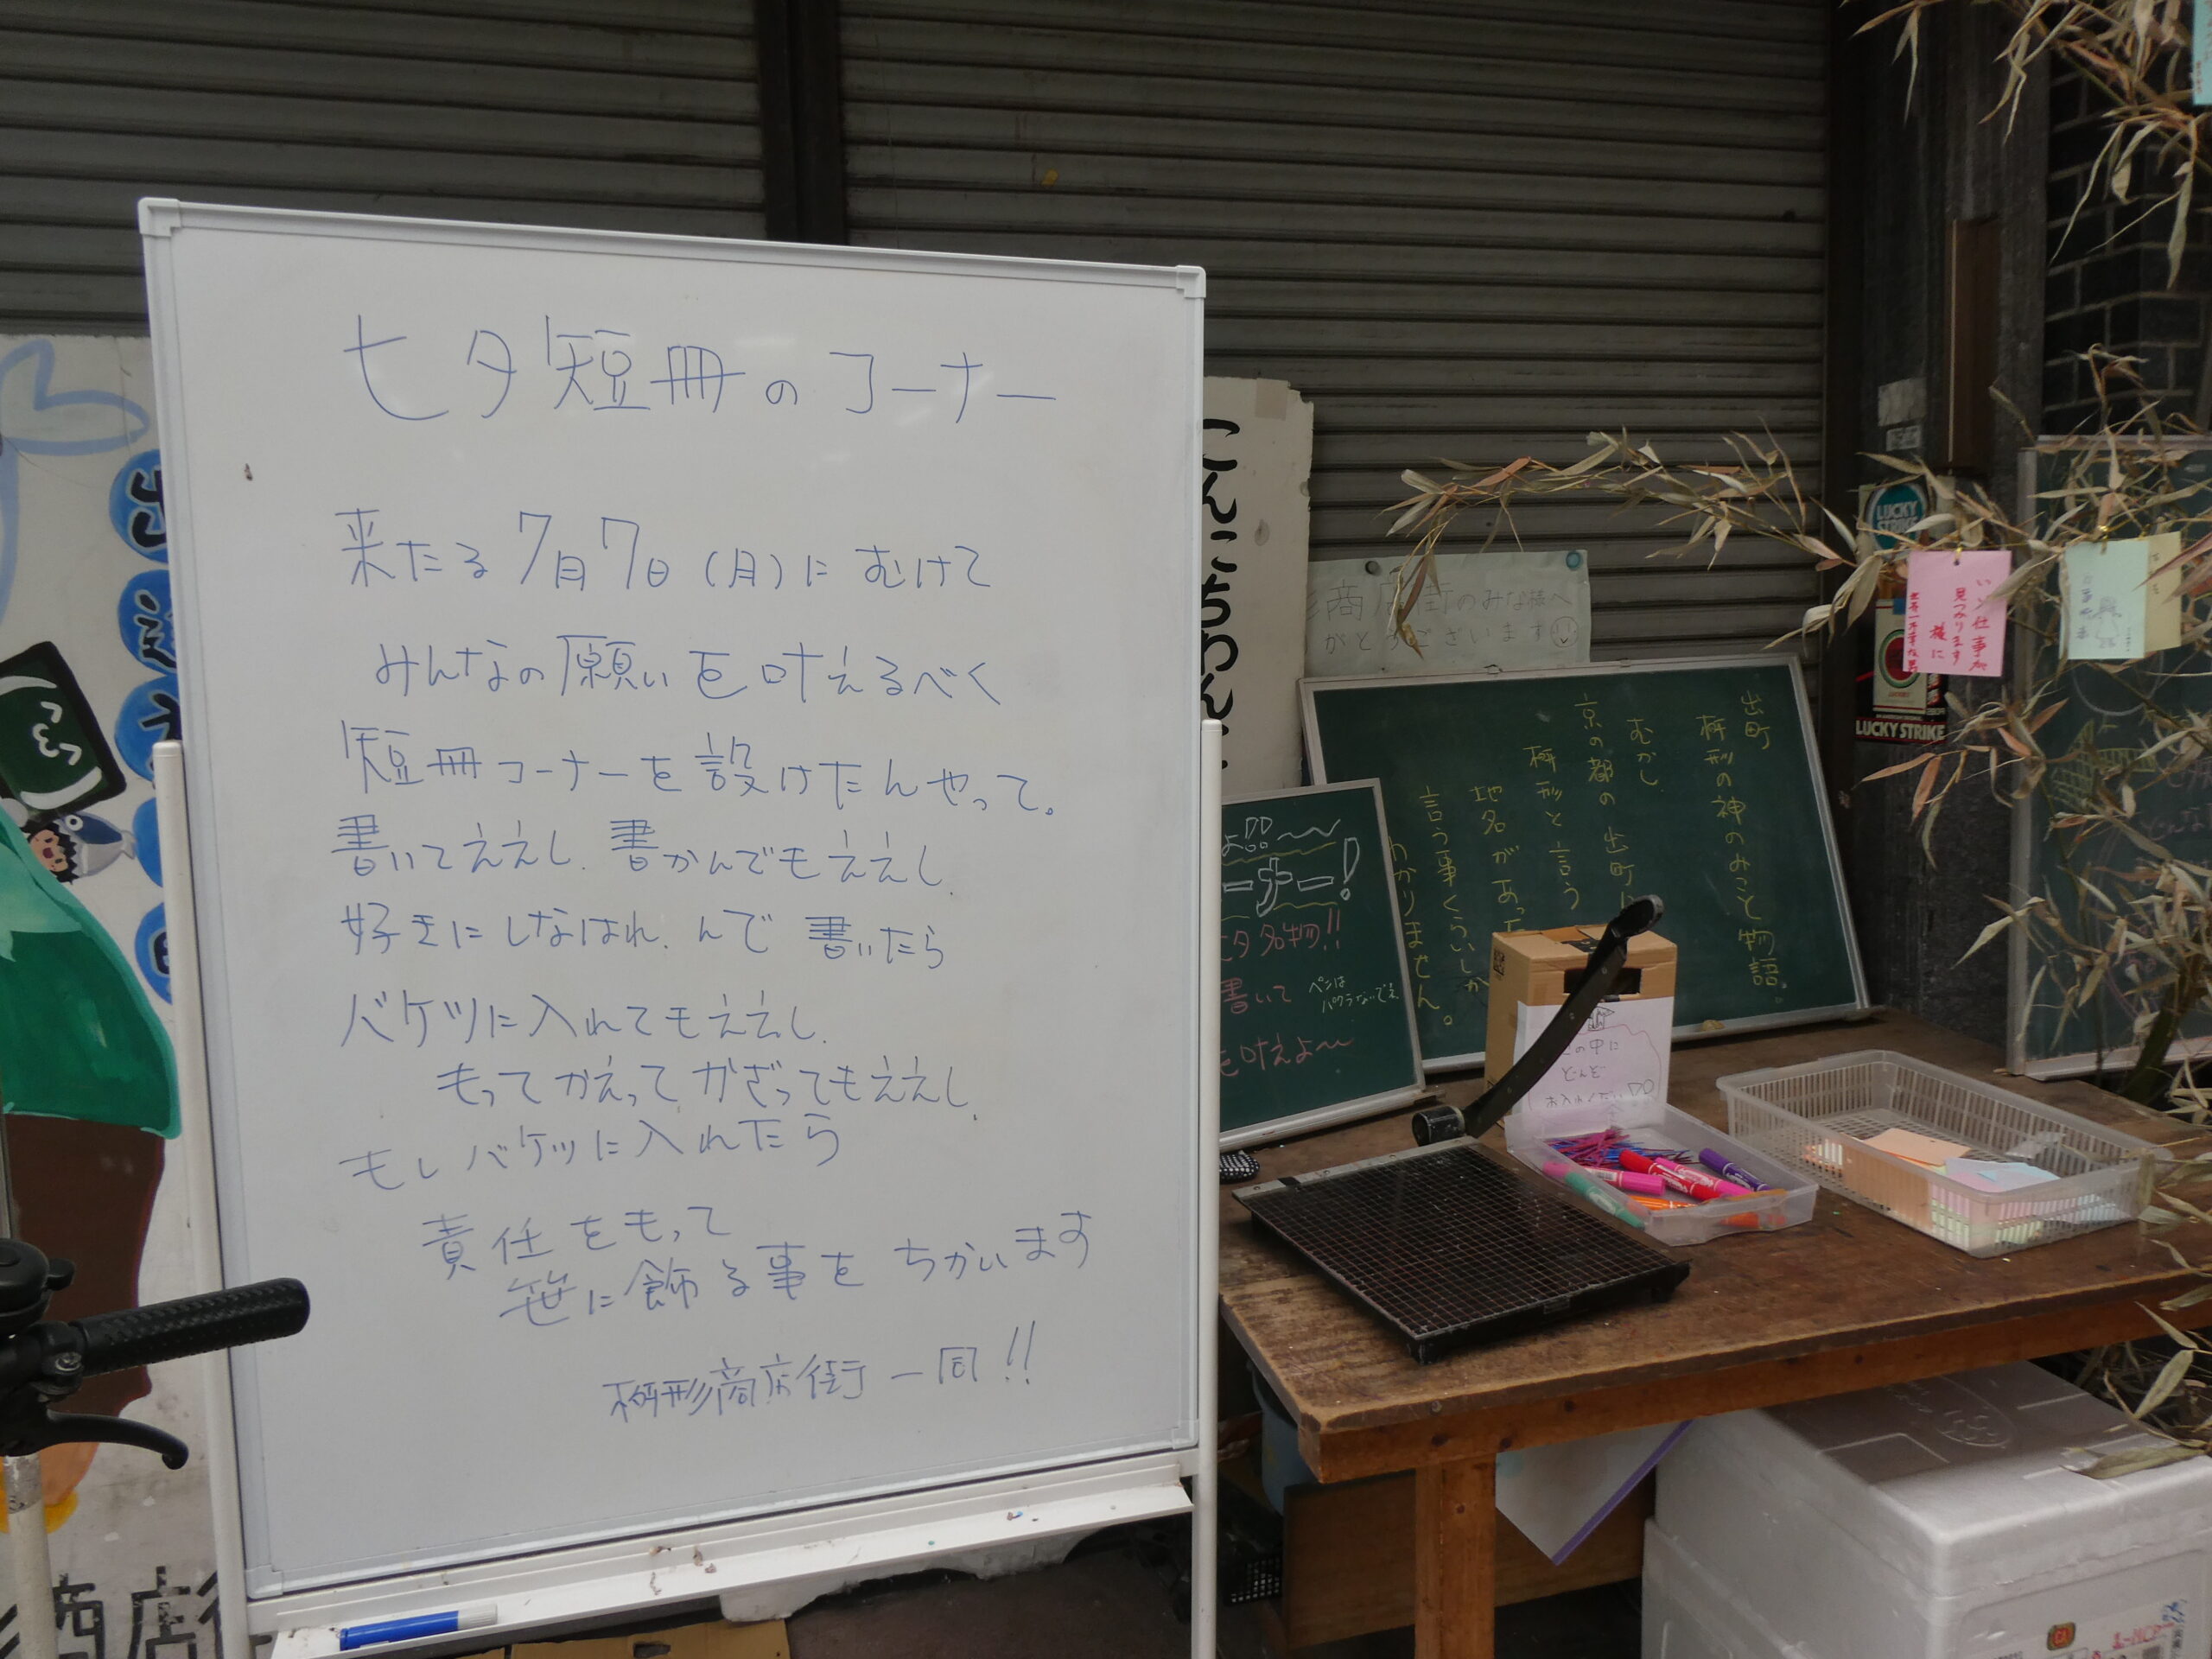 七夕短冊のコーナー
来たる7月7日(月)にむけて
みんなの願いを叶えるべく
短冊コーナーを設けたんやって。
書いてええし.書かんでもええし.
好きにしなはれ.んで書いたら
バケツに入れてもええし.
もってかえってかざってもええし.
もしバケツに入れたら
責任をもって
笹に飾る事をちかいます
桝形商店街一同!!
こんにちわん
商店街のみな様へ
がとうございます
出町
桝形の神のみこと物語。
むかし、
京の都の出町に
桝形と言う
地名があった
言う事くらいしか
わかりません。
ーナー!
夕名物!!
書いて
ペンは
パクらないでネ
を叶えよ〜
の中に
どんどん
お入れください
いい仕事が
見つかります
様に
LUCKY
STRIKE
LUCKY STRIKE
商店街